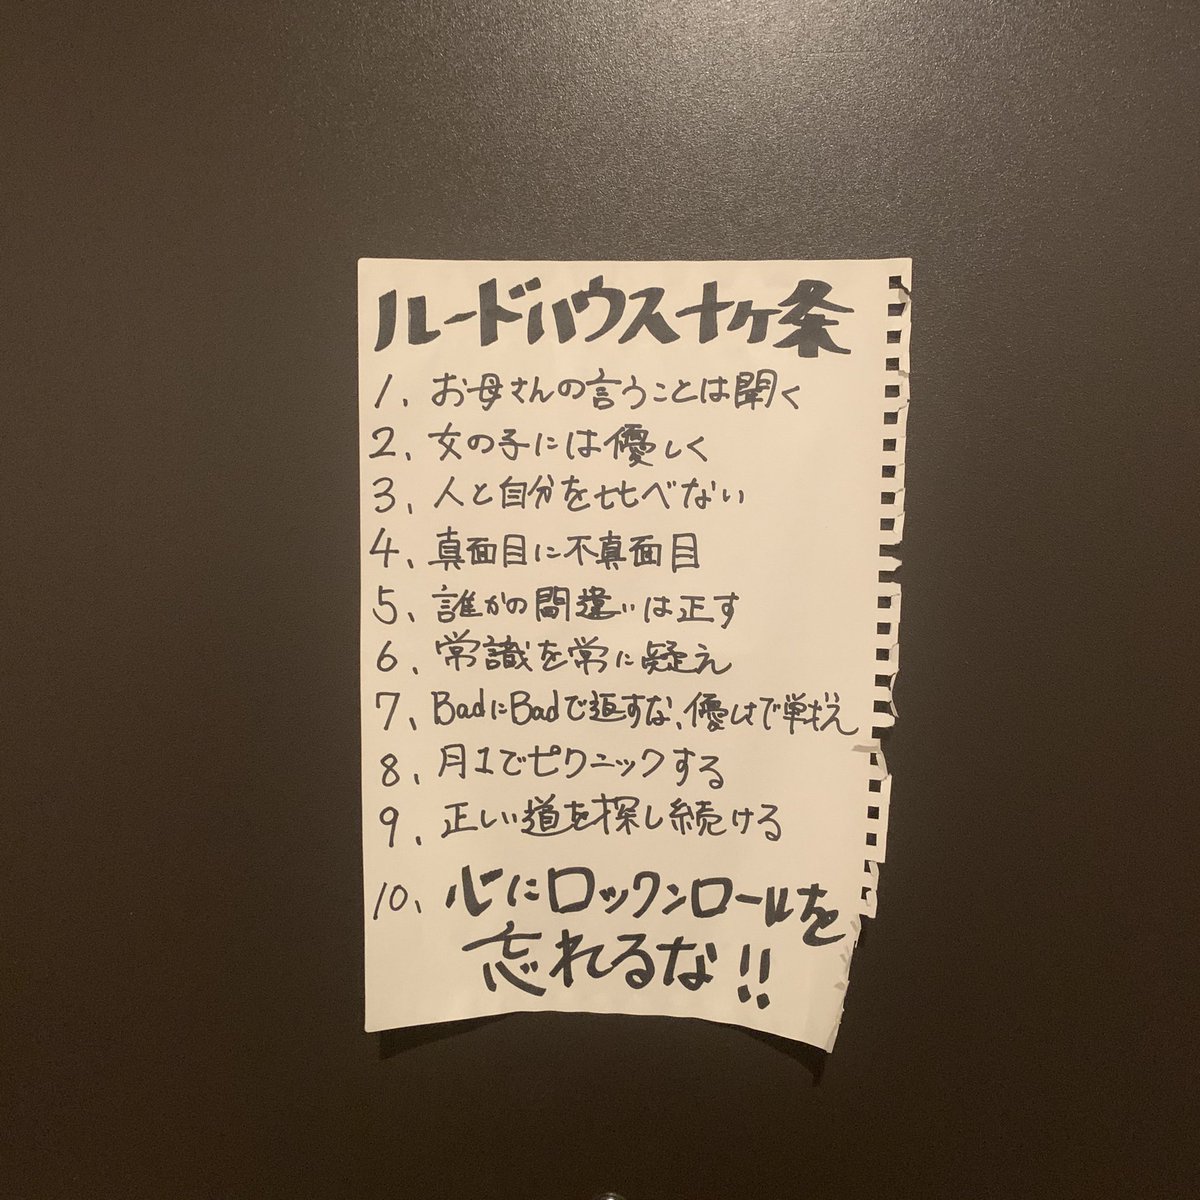 ルードハウス十ヶ条
1、お母さんの言うことは聞く
2、女の子には優しく
3、人と自分を比べない
4、真面目に不真面目
5、誰かの間違いは正す
6、常識を常に疑え
7、BadにBadで返すな、優しさで戦え
8、月1でピクニックする
9、正しい道を探し続ける
10、心にロックンロールを
忘れるな!!